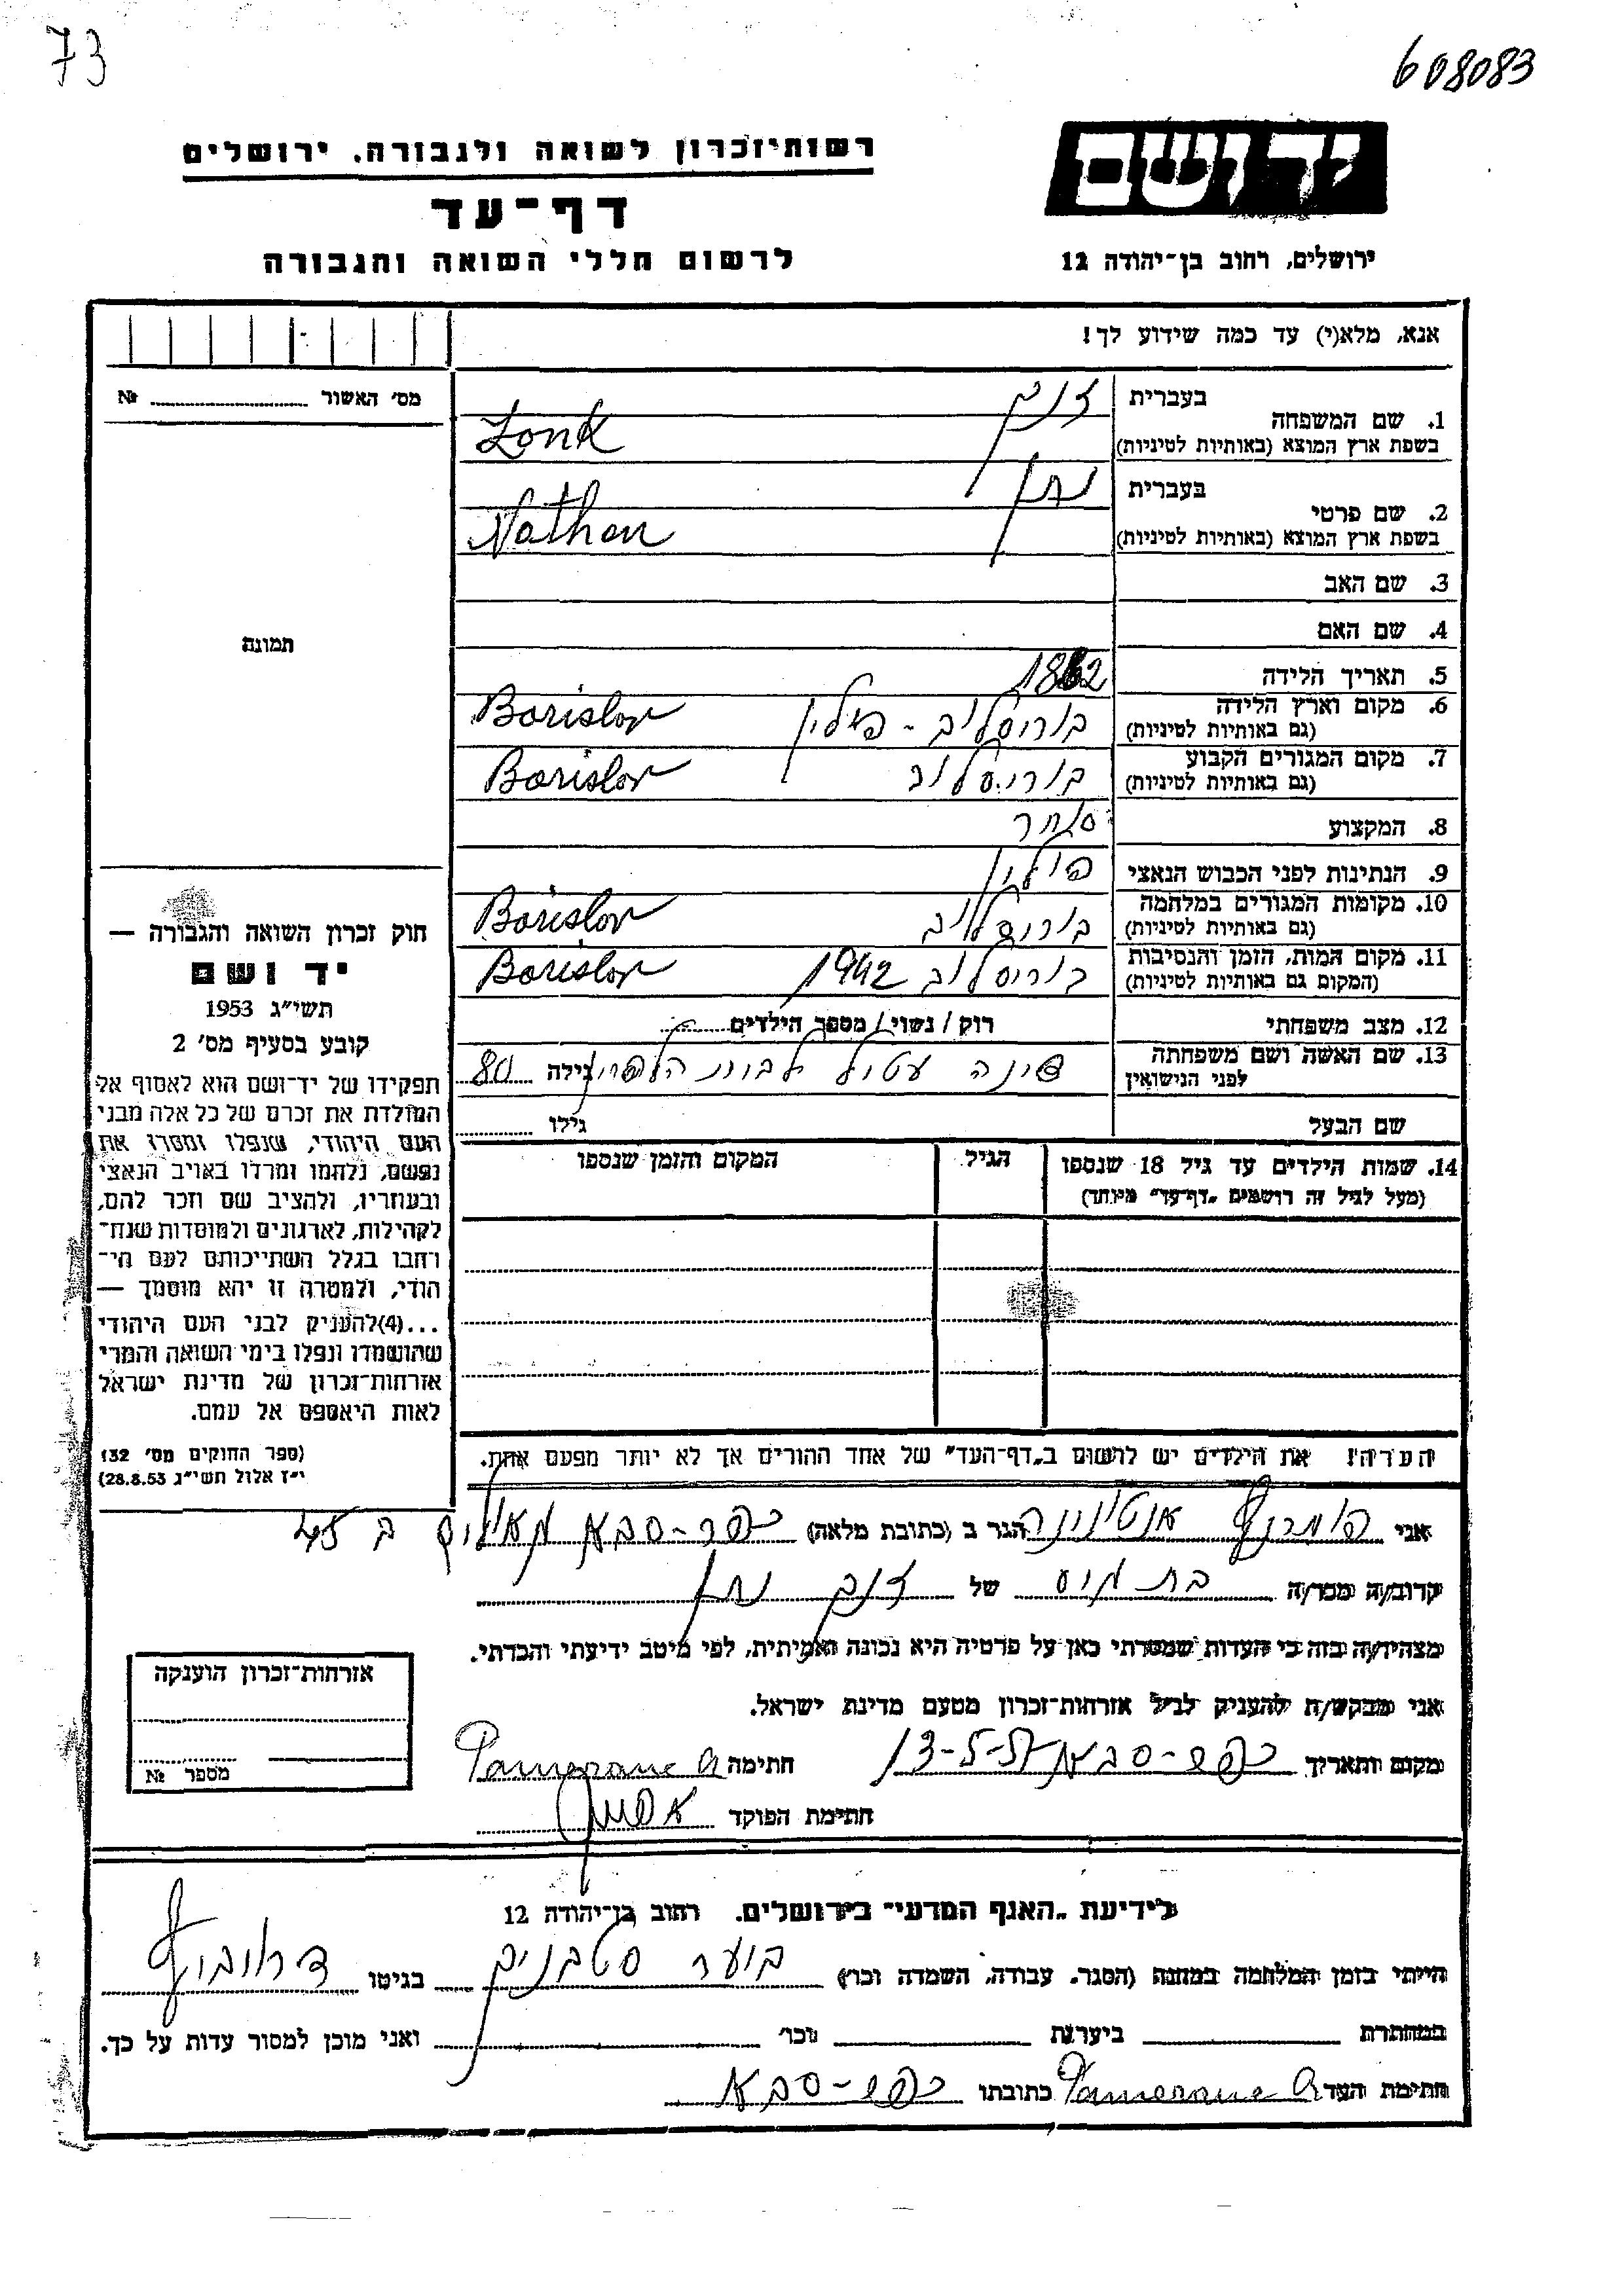 73
608083
יד ושם
ירושלים, רחוב בן־יהודה 12
רשות־זכרון לשואה ולגבורה, ירושלים
דף־עד
לרשום חללי השואה והגבורה
אנא, מלא(י) עד כמה שידוע לך!
מס׳ האשור № 
תמונה
1. שם המשפחה
בעברית זונק
בשפת ארץ המוצא (באותיות לטיניות) Zonk
2. שם פרטי
בעברית נתן
בשפת ארץ המוצא (באותיות לטיניות) Nathan
3. שם האב
4. שם האם
5. תאריך הלידה
6. מקום וארץ הלידה בוריסלוב - פולין Borislov
(גם באותיות לטיניות)
7. מקום המגורים הקבוע בוריסלוב Borislov
(גם באותיות לטיניות)
8. המקצוע סוחר
9. הנתינות לפני הכבוש הנאצי פולין
10. מקומות המגורים במלחמה בוריסלוב Borislov
(גם באותיות לטיניות)
11. מקום המות, הזמן והנסיבות בוריסלוב 1942 Borislov
(המקום גם באותיות לטיניות)
12. מצב משפחתי רוק / נשוי / מספר הילדים
13. שם האשה ושם משפחתה
לפני הנישואין גילה 80
שם הבעל גילו
14. שמות הילדים עד גיל 18 שנספו הגיל המקום והזמן שנספו
(מעל לגיל זה רושמים „דף־עד״ מיוחד)
חוק זכרון השואה והגבורה —
יד ושם
תשי״ג 1953
קובע בסעיף מס׳ 2
תפקידו של יד־ושם הוא לאסוף אל
המולדת את זכרם של כל אלה מבני
העם היהודי, שנפלו ומסרו את
נפשם, נלחמו ומרדו באויב הנאצי
ובעוזריו, ולהציב שם וזכר להם,
לקהילות, לארגונים ולמוסדות שנח־
רבו בגלל השתייכותם לעם הי־
הודי, ולמטרה זו יהא מוסמך —
...(4)להעניק לבני העם היהודי
שהושמדו ונפלו בימי השואה והמרי
אזרחות־זכרון של מדינת ישראל
לאות היאספם אל עמם.
(ספר החוקים מס׳ 132
י״ז אלול תשי״ג 28.8.53)
הערה! את הילדים יש לרשום ב„דף־העד״ של אחד ההורים אך לא יותר מפעם אחת.
אני אנטונינה הגר ב (כתובת מלאה) כפר-סבא
קרוב/ה מכר/ה של זונק נתן
מצהיר/ה בזה כי העדות שמסרתי כאן על פרטיה היא נכונה ואמיתית, לפי מיטב ידיעתי והכרתי.
אני מבקש/ת להעניק לנ״ל אזרחות־זכרון מטעם מדינת ישראל.
מקום ותאריך כפר-סבא 13-5-57 חתימה Pameranc A
חתימת הפוקד
אזרחות־זכרון הוענקה
מספר №
לידיעת „האגף המדעי״ בירושלים. רחוב בן־יהודה 12
הייתי בזמן המלחמה במחנה (הסגר, עבודה, השמדה וכו׳) בגיטו
במחתרת ביערות וכו׳ ואני מוכן למסור עדות על כך.
חתימת העד Pameranc A כתובתו כפר-סבא